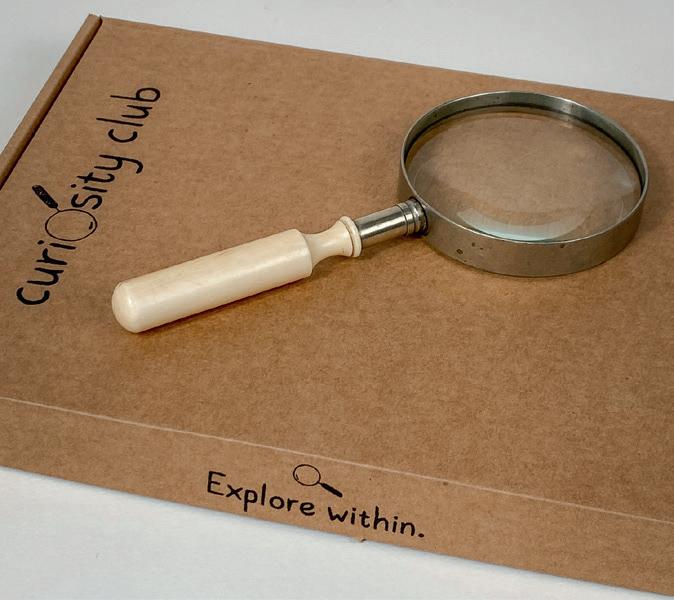 curiosity club
Explore within.